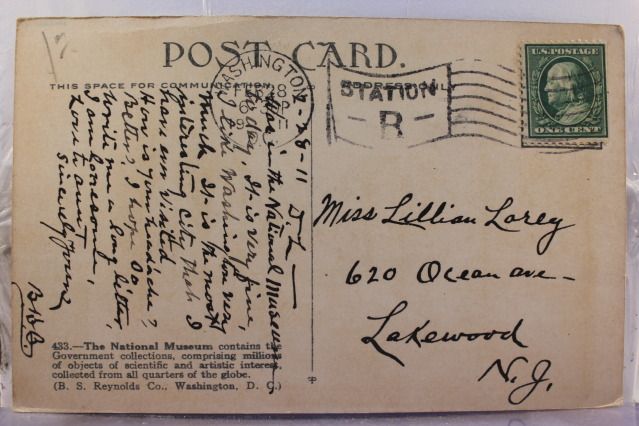 POST CARD.
THIS SPACE FOR COMMUNICATION
ADDRESS ONLY
WASHINGTON
STATION
R
U.S. POSTAGE
ONE CENT
2-28-11
D L —
Was in the National Museum
today. It is very fine,
I like Washington very
much. It is the most
interesting city that I
have ever visited
How is your headache?
Better, I hope so.
Write me a long letter,
I am lonesome,
Love to aunt
Sincerely yours
Miss Lillian Lorey
620 Ocean ave-
Lakewood
N.J.
433.—The National Museum contains the
Government collections, comprising millions
of objects of scientific and artistic interest,
collected from all quarters of the globe.
(B. S. Reynolds Co., Washington, D. C.)